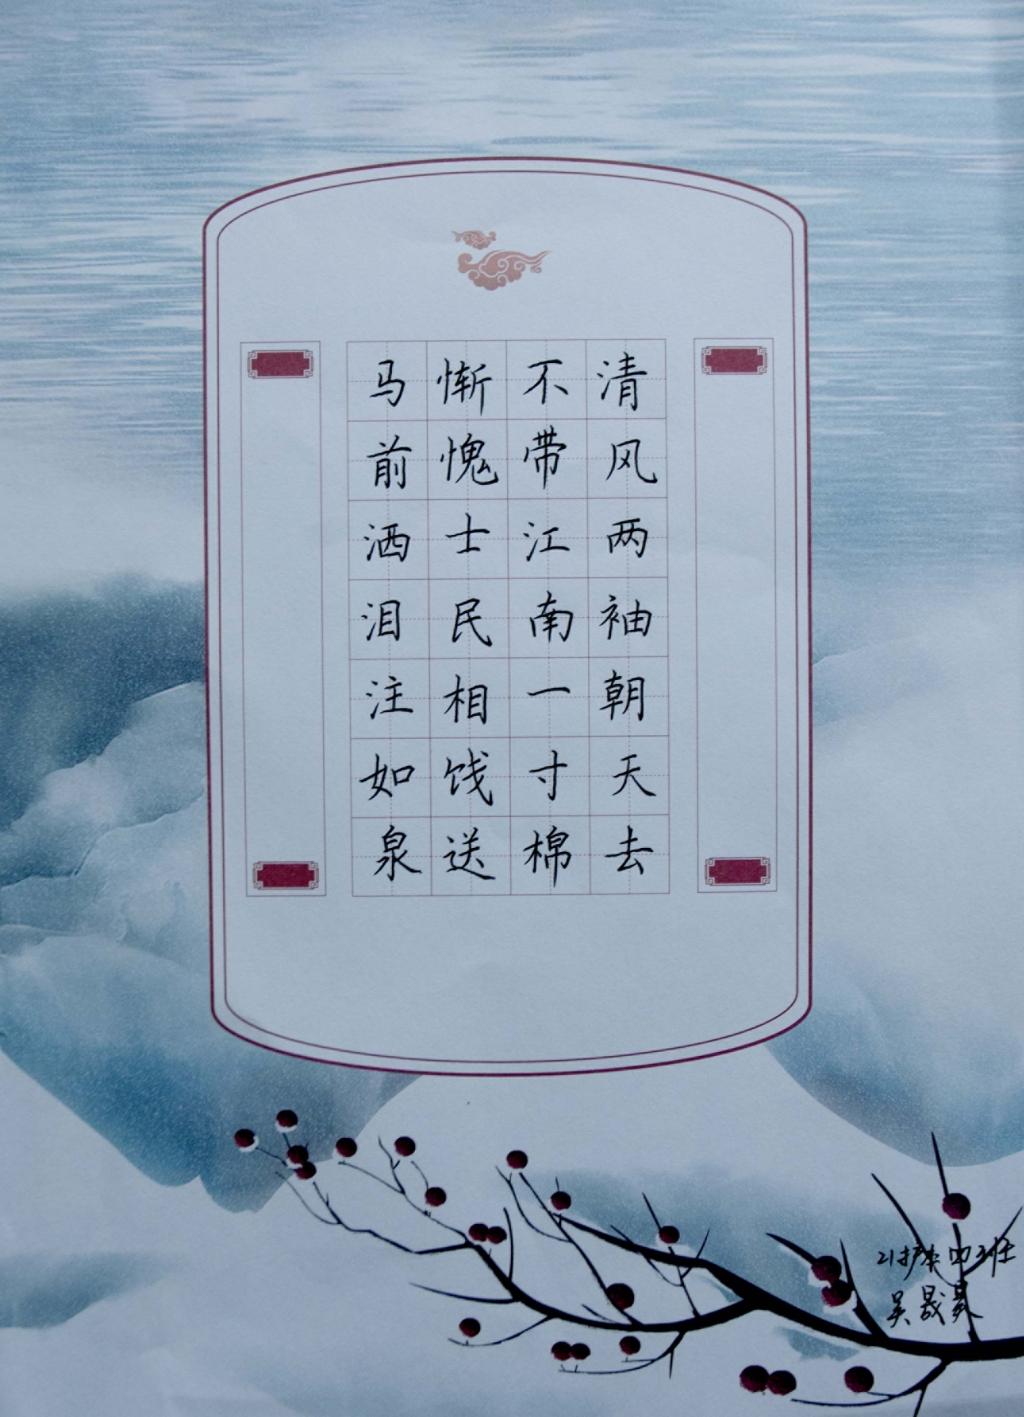 清风两袖朝天去
不带江南一寸棉
惭愧士民相饯送
马前洒泪注如泉
21护本四班
吴晟昊